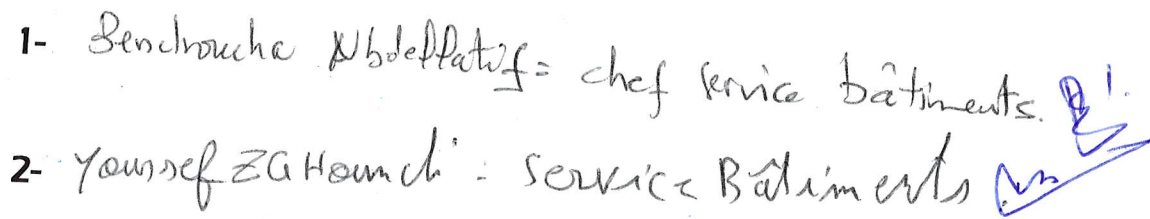 1- Benchroucha Abdellatif = chef service bâtiments.
2- Youssef ZGHoundi : service Bâtiments